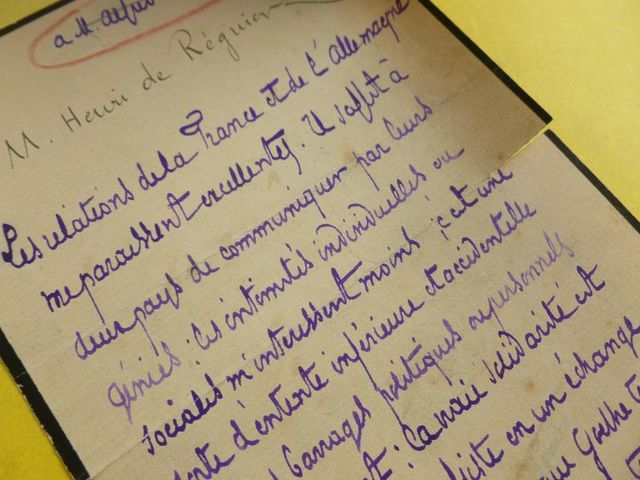 a M. Alfred
M. Henri de Régnier
Les relations de la France et de l'Allemagne
me paraissent excellentes. Il suffit à
deux pays de communiquer par leurs
génies ; les intimités individuelles ou
sociales m'intéressent moins ; c'est une
d'entente inférieure et accidentelle
politiques ou personnels
: la vraie solidarité est
en un échange
que Goethe